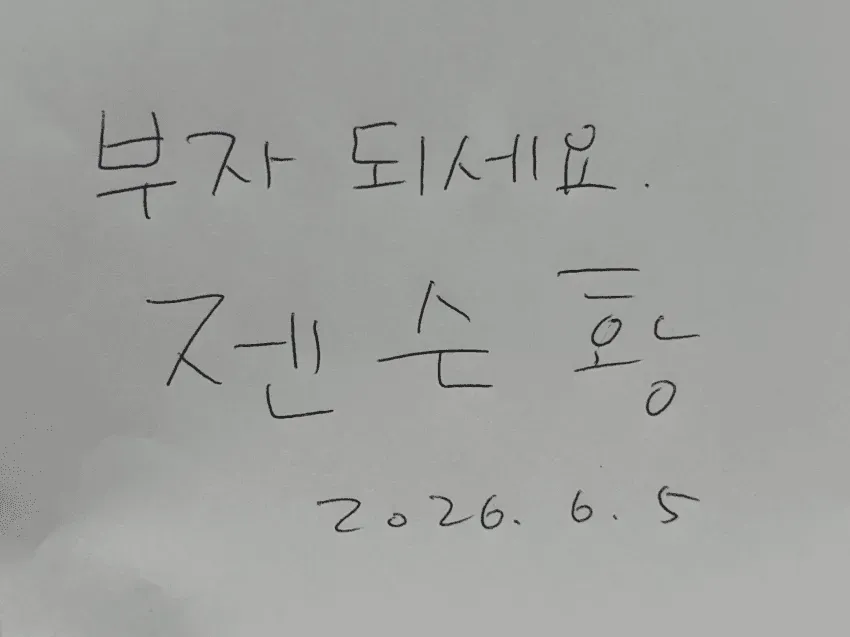 부자 되세요.
젠슨 황
2026. 6. 5